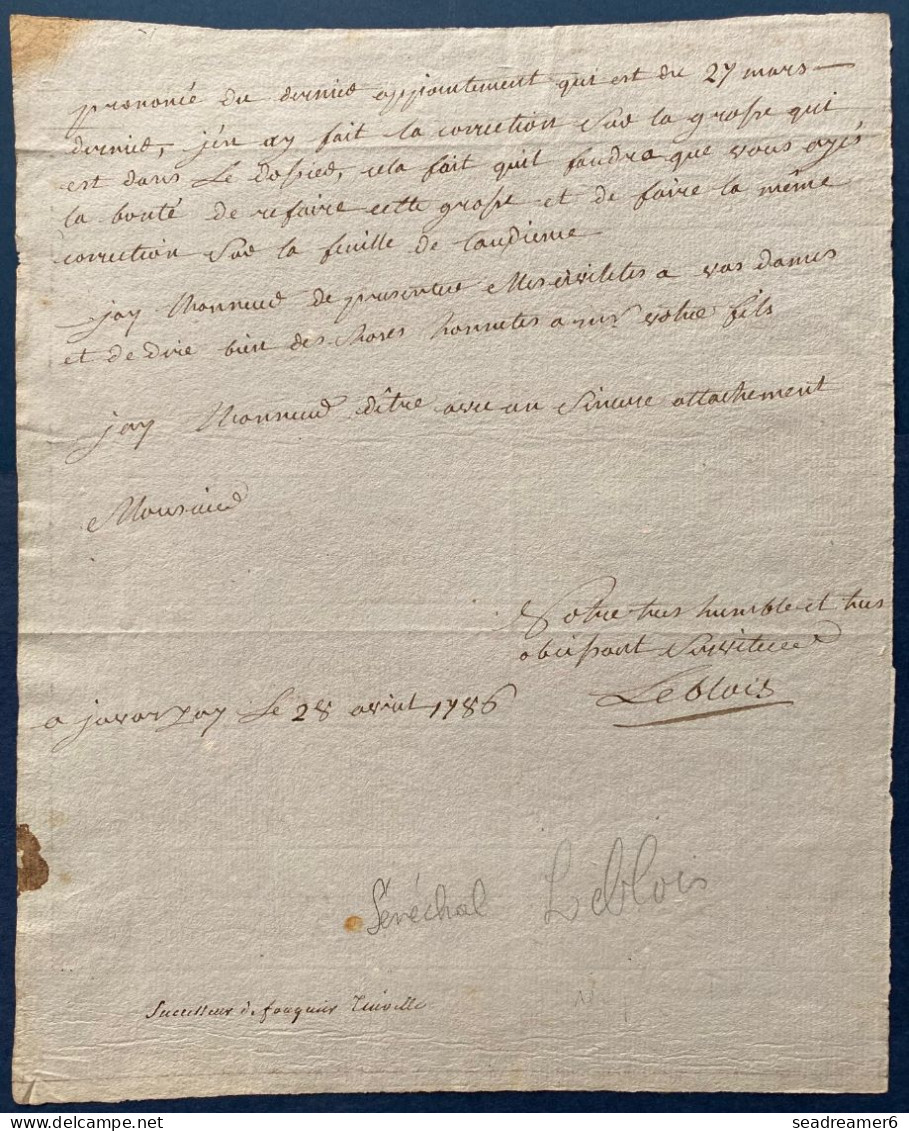 prononcé du dernier appointement qui est du 27 mars —
dernier, j'en ay fait la correction sur la grosse qui
est dans Le dossier, cela fait quil faudra que vous ayés
la bonté de refaire cette grosse et de faire la même
correction sur la feuille de laudience
jay Lhonneur de presenter Mes civilités a vos dames
et de dire bien des choses honnetes a mr votre fils
jay Lhonneur dêtre avec un Sincere attachement
Monsieur
Votre tres humble et tres
obeissant Serviteur
Leblois
a javarzay Le 28 avril 1786
Sénéchal Leblois
Successeur de fouquier Tinville
delcampe.net
seadreamer6